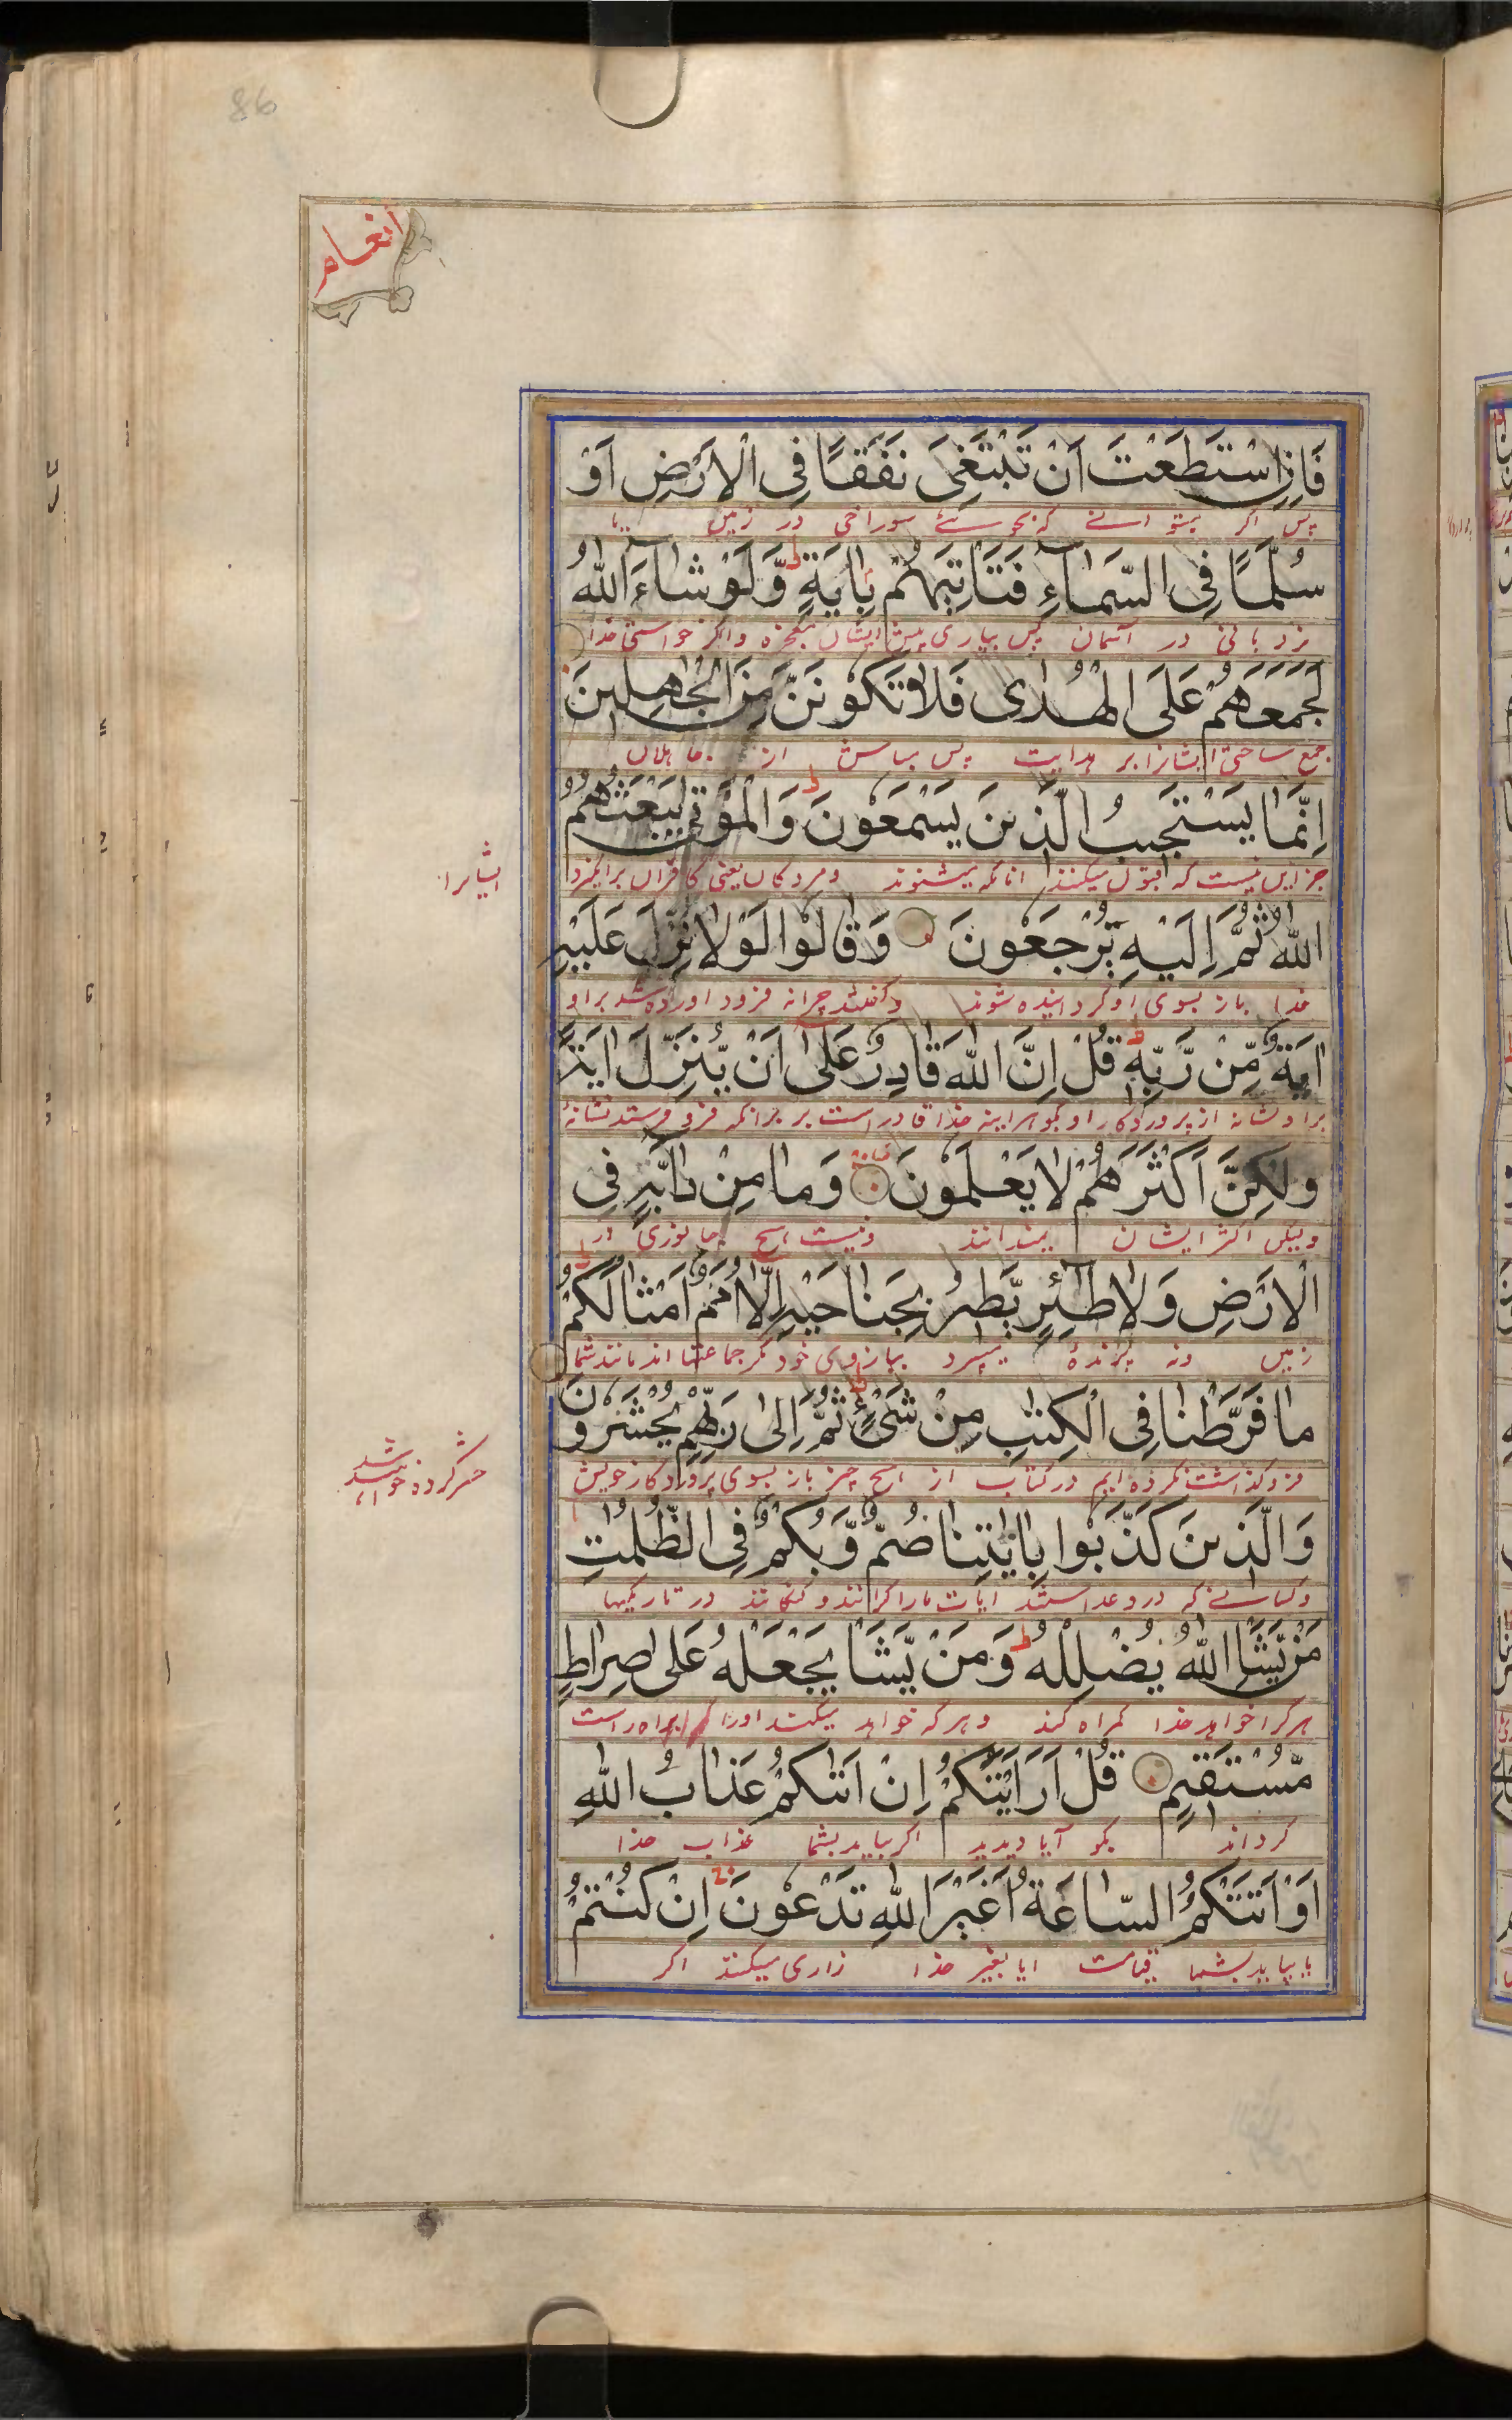 86
أنعام
فَاِنِ اسْتَطَعْتَ اَنْ تَبْتَغِیَ نَفَقًا فِی الْاَرْضِ اَوْ
پس اگر بتوانے که بجوئے سوراخی در زمین یا
سُلَّمًا فِی السَّمَآءِ فَتَاْتِيَهُمْ بِاٰيَةٍ ط وَّلَوْ شَآءَ اللّٰهُ
نردبانی در آسمان پس بیاری پیش ایشان معجزه واگر خواستی خدا
لَجَمَعَهُمْ عَلَی الْهُدٰی فَلَا تَكُوْنَنَّ مِنَ الْجٰهِلِيْنَ
جمع ساختی ایشانرا بر هدایت پس مباش از جاهلان
اِنَّمَا يَسْتَجِيْبُ الَّذِيْنَ يَسْمَعُوْنَ ط وَالْمَوْتٰی يَبْعَثُهُمُ
جز این نیست که قبول میکنند انانکه میشنوند ومردکان یعنی کافران برانکیزد
ایشانرا
اللّٰهُ ثُمَّ اِلَيْهِ يُرْجَعُوْنَ وَقَالُوْا لَوْلَا نُزِّلَ عَلَيْهِ
خدا باز بسوی او گردانیده شوند وگفتند چرا نه فرود اورده شد براو
اٰيَةٌ مِّنْ رَّبِّهٖ ط قُلْ اِنَّ اللّٰهَ قَادِرٌ عَلٰٓی اَنْ يُّنَزِّلَ اٰيَةً
براو نشانه از پروردکار او بگو هراینه خدا قادر است بر برانکه فرو فرستد نشانهٔ
وَلٰكِنَّ اَكْثَرَهُمْ لَا يَعْلَمُوْنَ وَمَا مِنْ دَآبَّةٍ فِی
ولیکن اکثر ایشان نمیدانند ونیست هیچ جانوری در
الْاَرْضِ وَلَا طٰٓئِرٍ يَّطِيْرُ بِجَنَاحَيْهِ اِلَّآ اُمَمٌ اَمْثَالُكُمْ ط
زمین ونه پرندهٔ میپرد ببازوی خود مگر جماعتها اند مانند شما
مَا فَرَّطْنَا فِی الْكِتٰبِ مِنْ شَیْءٍ ط ثُمَّ اِلٰی رَبِّهِمْ يُحْشَرُوْنَ
فرو گذاشت نکرده ایم در کتاب از هیچ چیز باز بسوی پروردکار خویش
حشر کرده خواهند شد
وَالَّذِيْنَ كَذَّبُوْا بِاٰيٰتِنَا صُمٌّ وَّبُكْمٌ فِی الظُّلُمٰتِ
وکسانے که دروغ داشتند ایات مارا کرانند و کنکانند در تاریکیها
مَنْ يَّشَاِ اللّٰهُ يُضْلِلْهُ ط وَمَنْ يَّشَاْ يَجْعَلْهُ عَلٰی صِرَاطٍ
هرکرا خواهد خدا گمراه کند وهرکه خواهد میکند اورا براه راست
مُّسْتَقِيْمٍ قُلْ اَرَاَيْتَكُمْ اِنْ اَتٰىكُمْ عَذَابُ اللّٰهِ
گرداند بگو آیا دیدید اگر بیاید بشما عذاب خدا
اَوْ اَتَتْكُمُ السَّاعَةُ اَغَيْرَ اللّٰهِ تَدْعُوْنَ اِنْ كُنْتُمْ
یا بیاید بشما قیامت ایا بغیر خدا زاری میکنند اگر